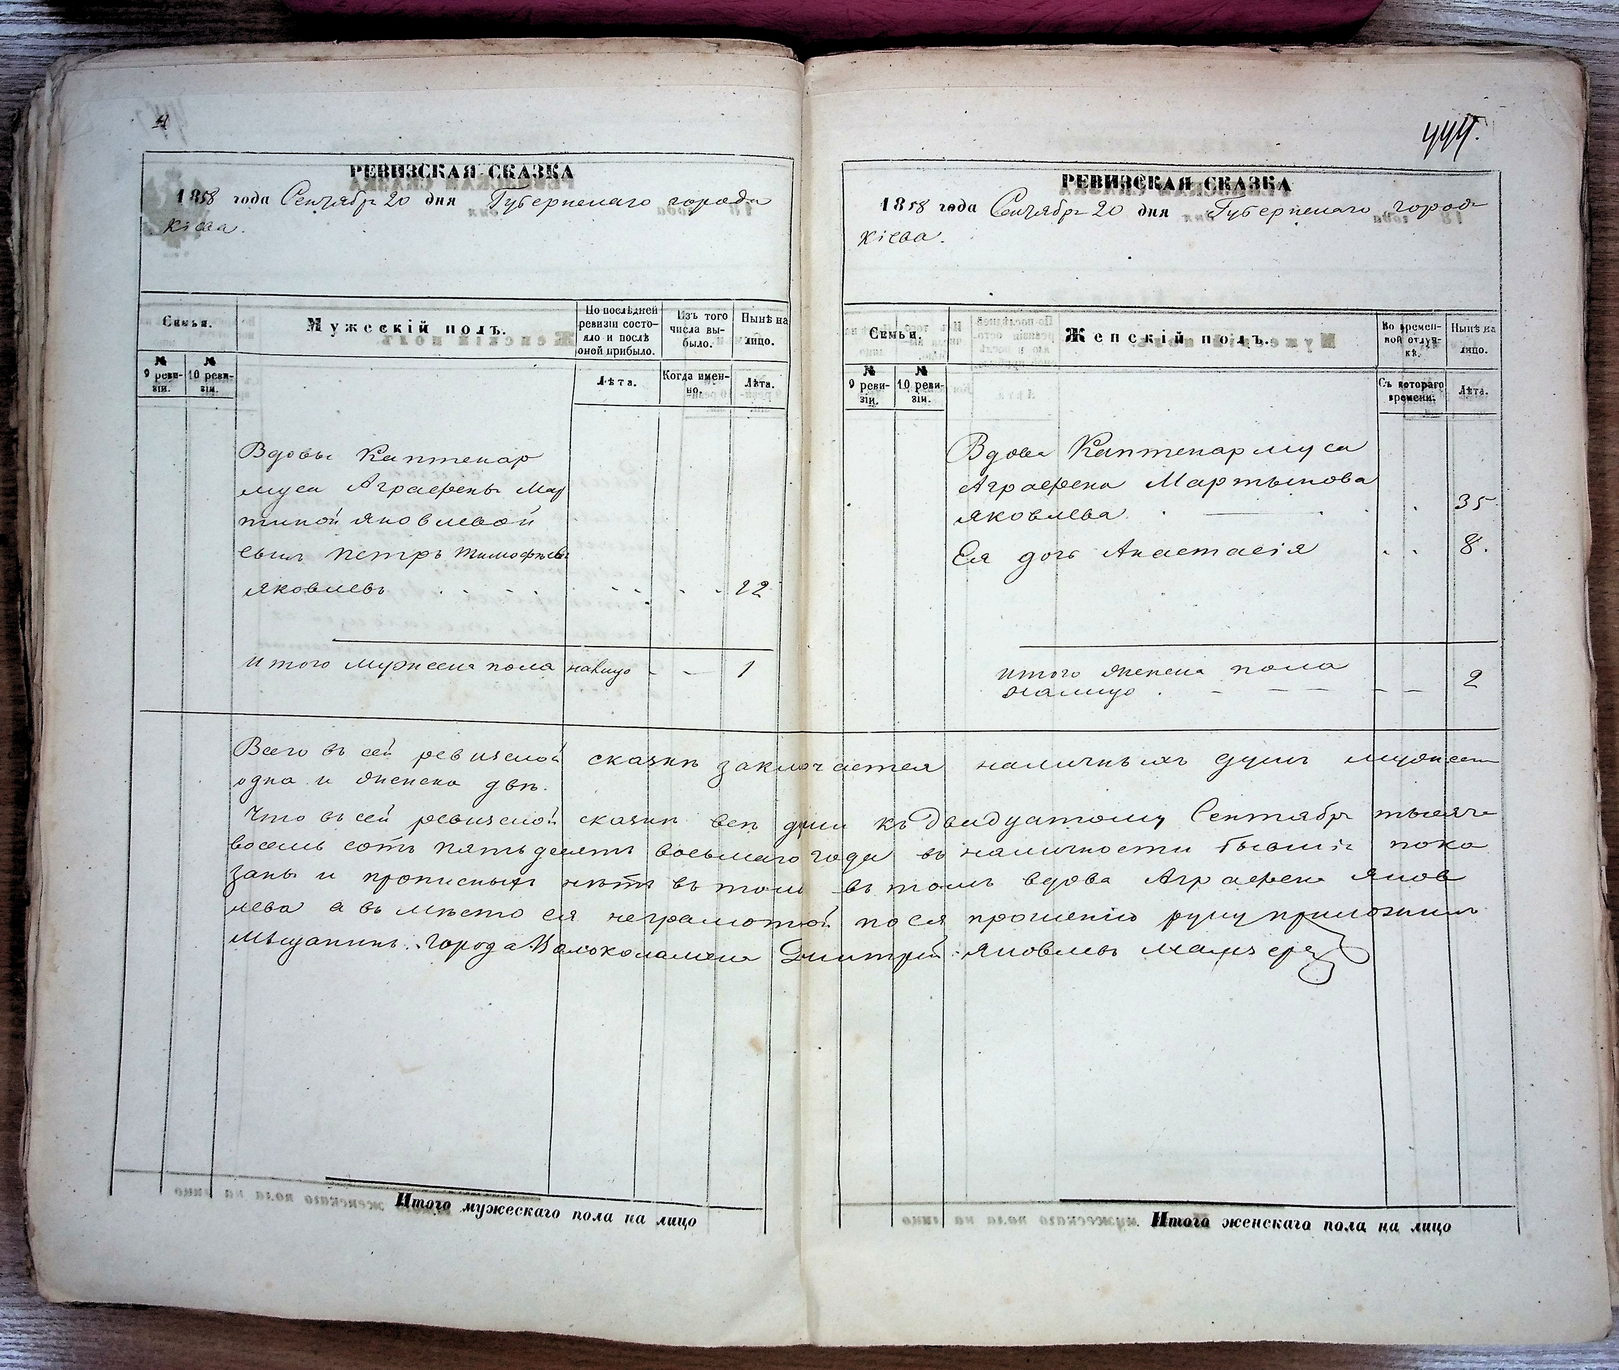 444.
РЕВИЗСКАЯ СКАЗКА
1858 года Сентября 20 дня Губернскаго города
Кіева.
Семьи.
Мужескій полъ.
По послѣдней ревизіи состояло и послѣ оной прибыло.
Изъ того числа выбыло.
Нынѣ на лицо.
№ 9 ревизіи.
№ 10 ревизіи.
Лѣта.
Когда именно.
Лѣта.
Вдовы Каптенар
муса Аграфены Мар
тыновой Яковлевой
сынъ Петръ Тимофѣевъ
Яковлевъ 12
Итого мужеска пола налицо 1
РЕВИЗСКАЯ СКАЗКА
1858 года Сентября 20 дня Губернскаго города
Кіева.
Семьи.
Женскій полъ.
Во временной отлучкѣ.
Нынѣ на лицо.
№ 9 ревизіи.
№ 10 ревизіи.
Съ котораго времени.
Лѣта.
Вдова Каптенармуса
Аграфена Мартынова
Яковлева 35
Ея дочь Анастасія 8.
Итого женска пола
налицо 2
Всего въ сей ревизской сказкѣ заключается наличныхъ душъ мужеска
одна и женска двѣ.
Что въ сей ревизской сказкѣ всѣ души къ двадцатому Сентября тысяча
восемь сотъ пятьдесятъ восьмаго года въ наличности бывшіе пока
заны и прописныхъ нѣтъ въ томъ въ томъ вдова Аграфена Яков
лева а въ мѣсто ея неграмотной по ея прошенію руку приложилъ
мѣщанинъ города Волоколамска Дмитрій Яковлевъ
Итого мужескаго пола на лицо
Итого женскаго пола на лицо